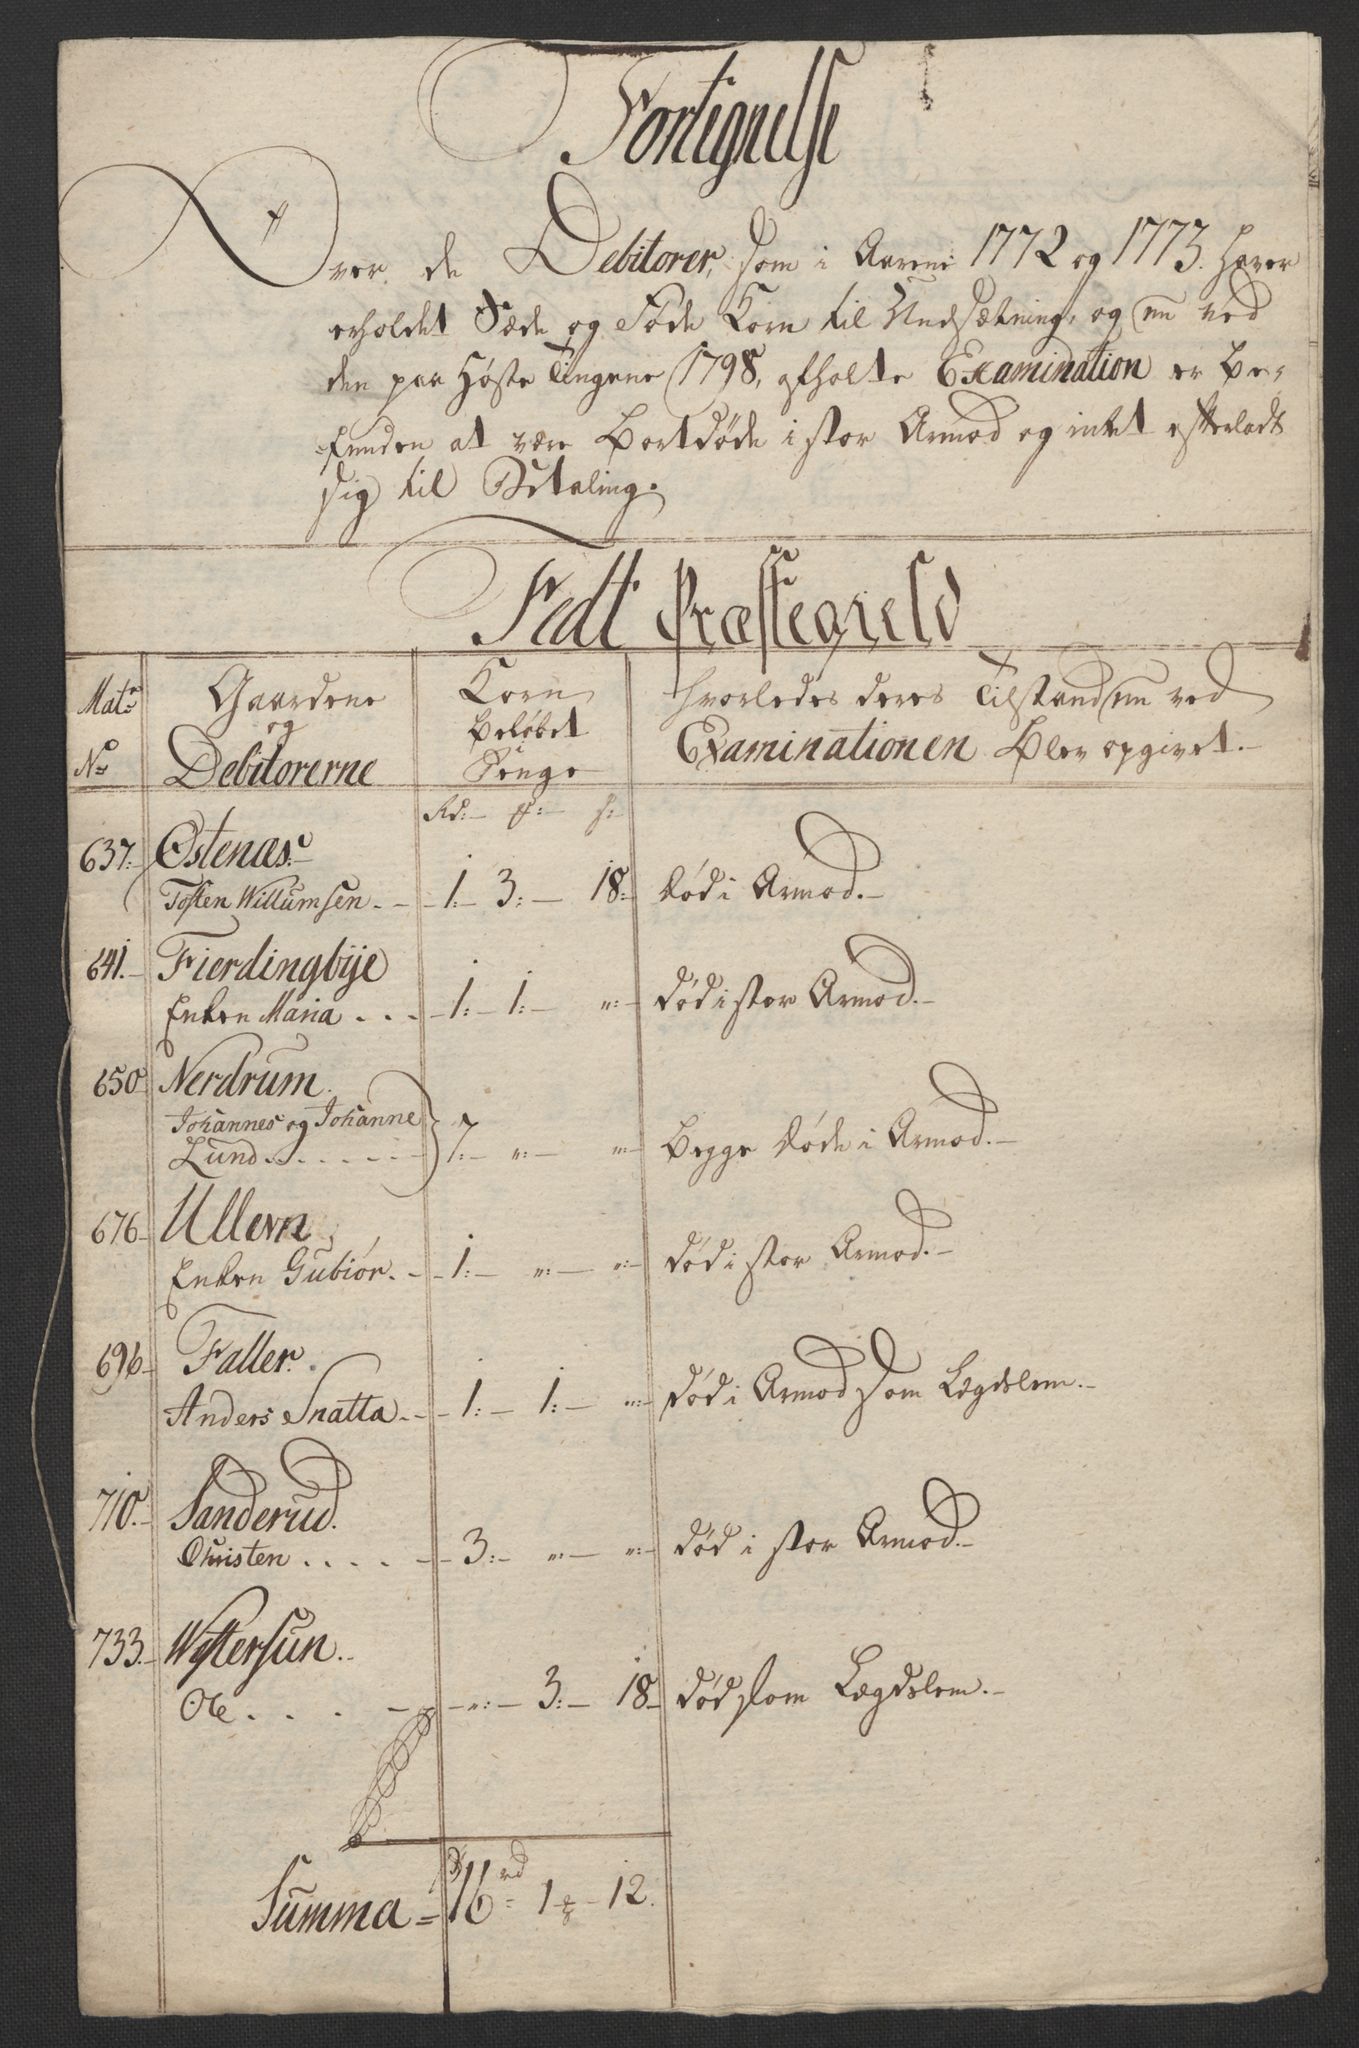 Fortegnelse
Over de Debitorer, som i Aarene 1772 og 1773. haver
erholdet Sæde og Føde Korn til Undsætning, og nu ved
den paa Høste Tingene 1798, afholte Examination er be-
funden at være bortdøde i stor Armod og intet efterladt
sig til Betaling.
Fedt Præstegield
Mat:
No:
Gaardene
og
Debitorerne
Korn
beløbet
i
Penge
hvorledes deres Tilstand nu ved
Examinationen blev opgivet.
Rd:
637. Østenæs.
Tosten Willumsen - - 1:- 3:- 18:- død i Armod.-
641. Fierdingbÿe
Enken Maria . . . 1:- 1:- ":- død i stor Armod.-
650 Nerdrum.
Johannes og Johanne
Lund . . . . . . } 7:- ":- ":- begge døde i Armod.-
676 Ullern
Enken Gubiör. - - 1:- ":- ":- død i stor Armod.-
696 Faller.
Anders Snatta - - 1:- 1:- ":- død i Armod som Lægdslem.-
710. Sanderud.
Christen . . . . - 3:- ":- ":- død i stor Armod.-
733. Westersun.
Ole . . . . - ":- 3:- 18- død som Lægdslem.-
Summa = 16 rd 1 - 12.